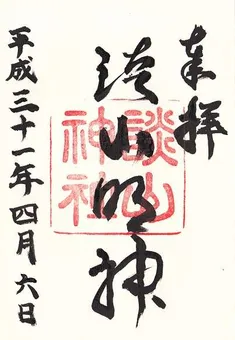 奉拝
談山明神
談山
神社
平成三十一年四月六日